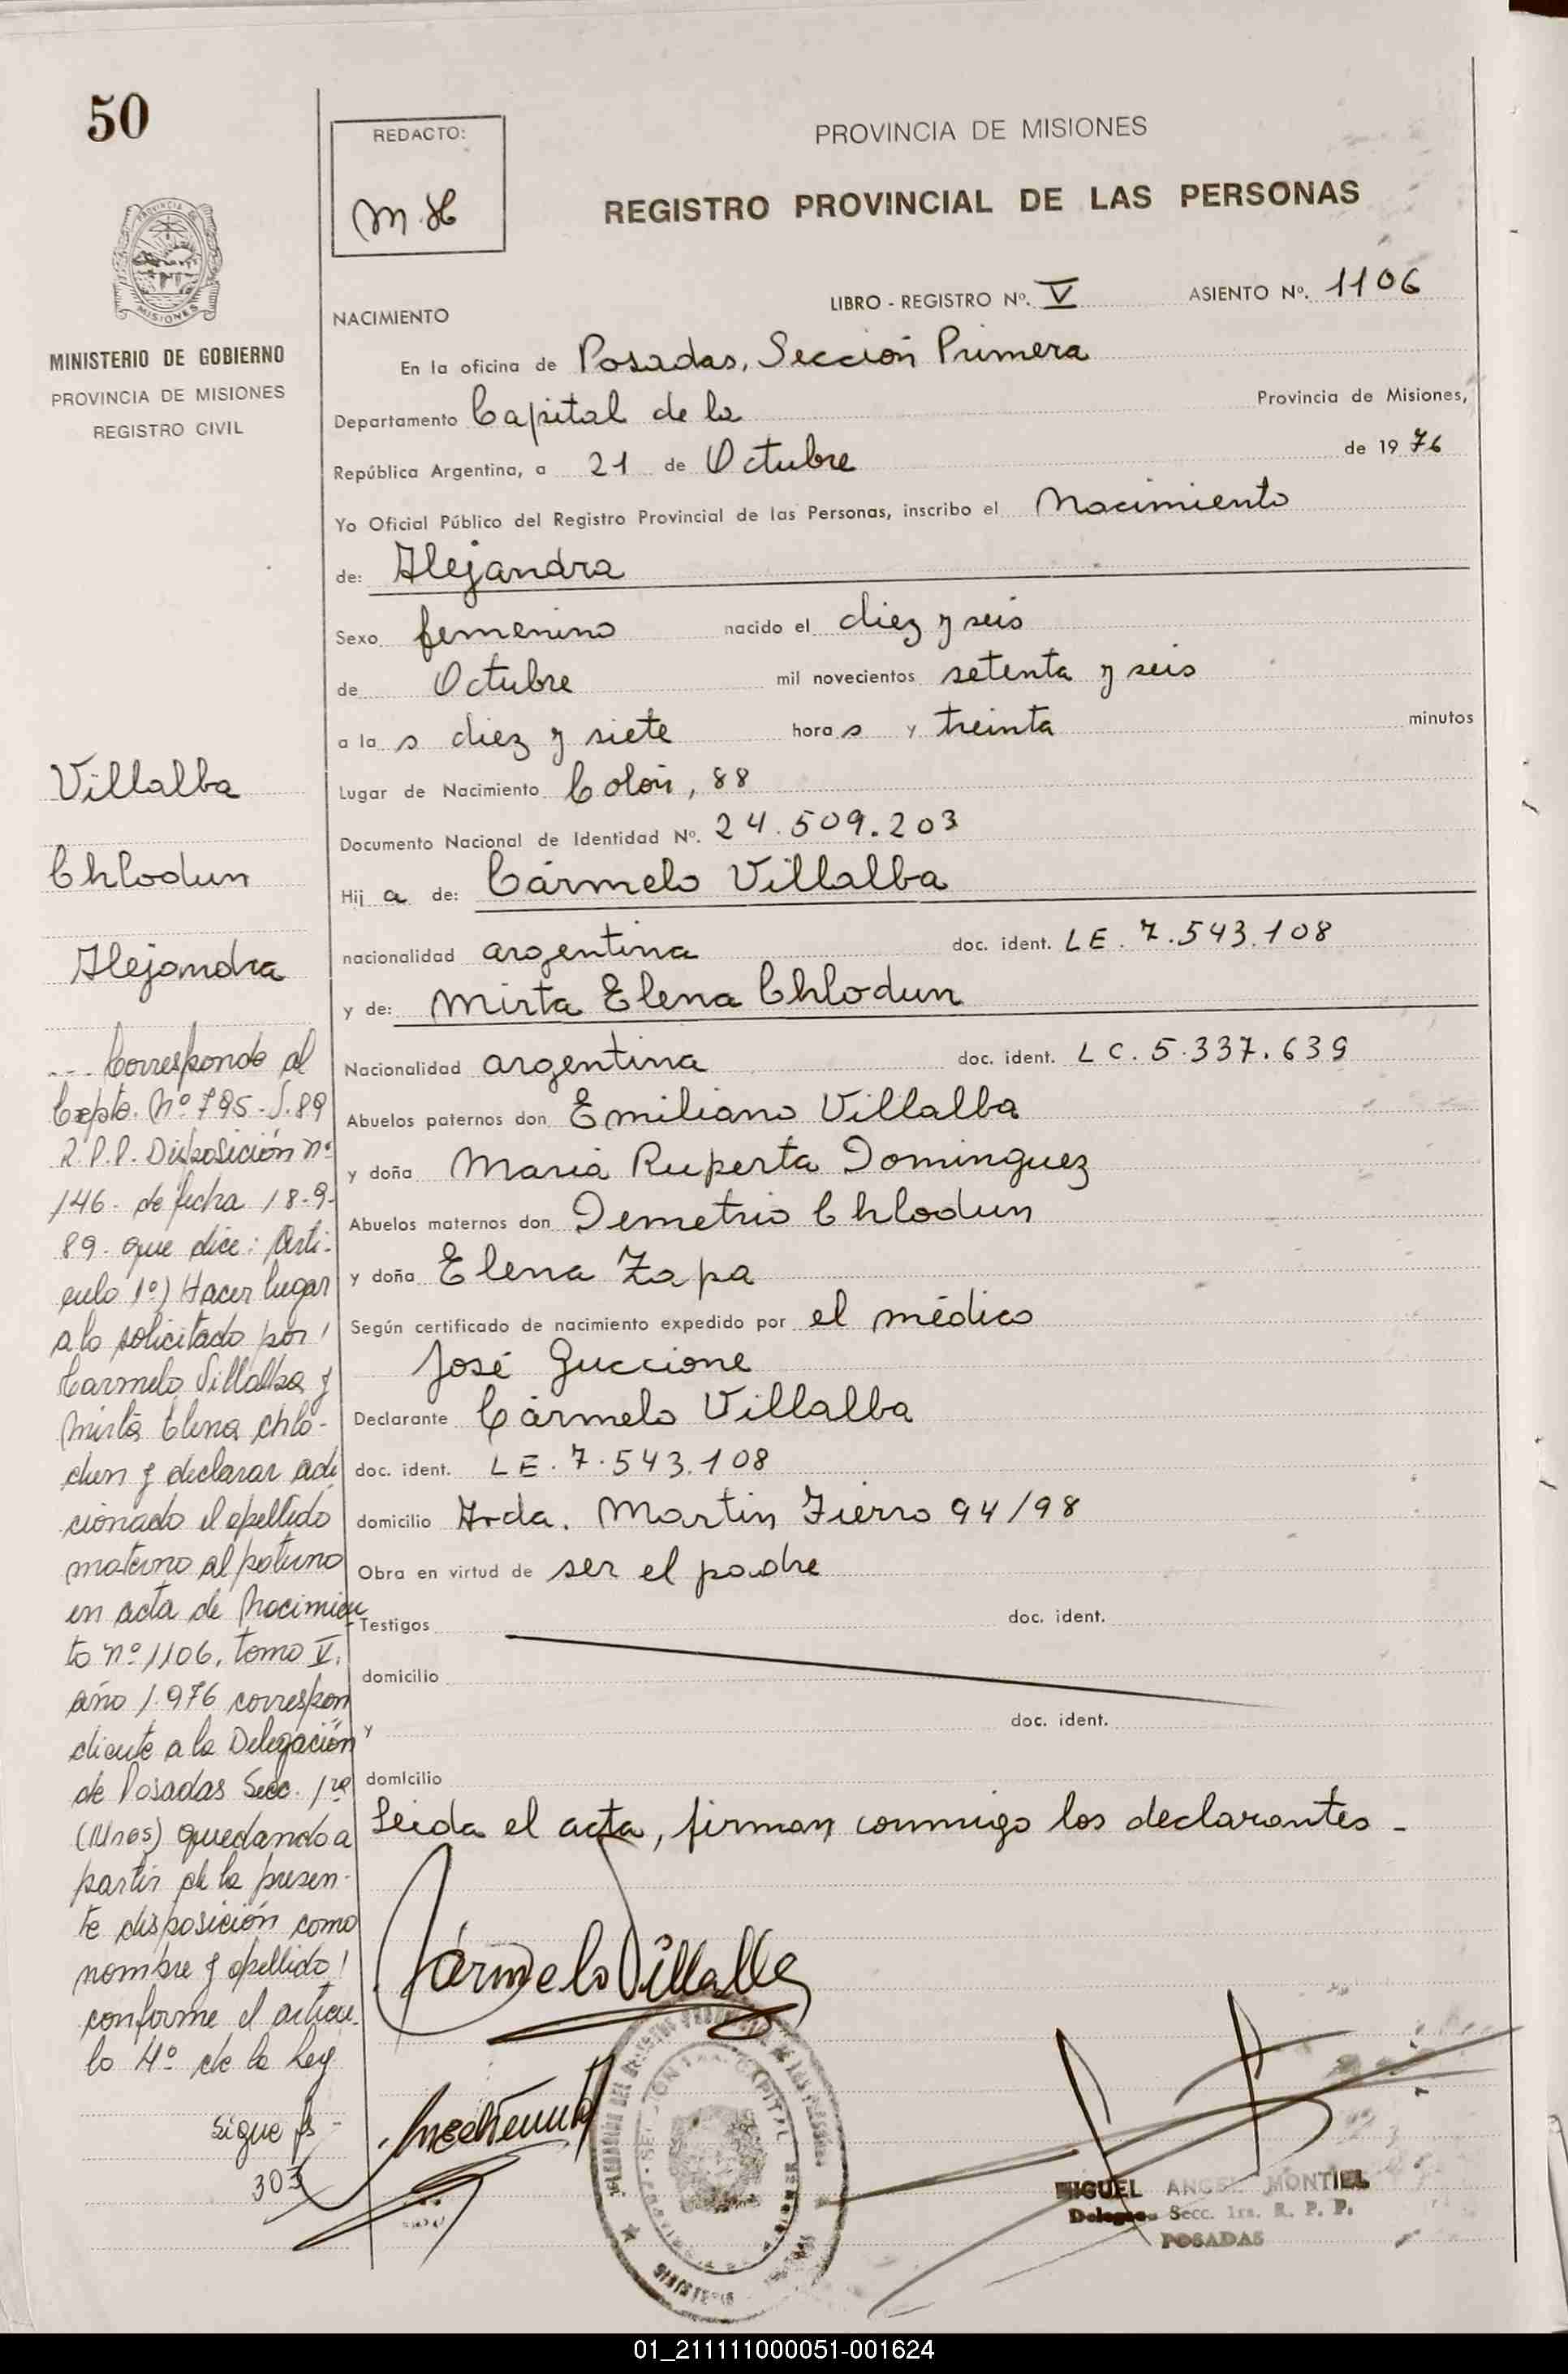 50
REDACTO:
M.H
PROVINCIA DE MISIONES
REGISTRO PROVINCIAL DE LAS PERSONAS
MISIONES
MINISTERIO DE GOBIERNO
PROVINCIA DE MISIONES
REGISTRO CIVIL
NACIMIENTO
LIBRO - REGISTRO Nº. V ASIENTO Nº. 1106
En la oficina de Posadas, Sección Primera
Departamento Capital de la Provincia de Misiones,
República Argentina, a 21 de Octubre de 1976
Yo Oficial Público del Registro Provincial de las Personas, inscribo el Nacimiento
de: Alejandra
Sexo femenino nacido el diez y seis
de Octubre mil novecientos setenta y seis
a la s diez y siete hora s y treinta minutos
Lugar de Nacimiento Colón, 88
Documento Nacional de Identidad Nº. 24.509.203
Hij a de: Cármelo Villalba
nacionalidad argentina doc. ident. LE. 7.543.108
y de: Mirta Elena Chlodun
Nacionalidad argentina doc. ident. LC. 5.337.639
Abuelos paternos don Emiliano Villalba
y doña María Ruperta Dominguez
Abuelos maternos don Demetrio Chlodun
y doña Elena Zapa
Según certificado de nacimiento expedido por el médico
José Guccione
Declarante Cármelo Villalba
doc. ident. LE. 7.543.108
domicilio Avda. Martín Fierro 94/98
Obra en virtud de ser el padre
Testigos doc. ident.
domicilio
y doc. ident.
domicilio
Leida el acta, firman conmigo los declarantes -
Cármelo Villalba
MIGUEL ANGEL MONTIEL
Delegado Secc. 1ra. R. P. P.
POSADAS
Villalba
Chlodun
Alejandra
--- Corresponde al
Expte. Nº 795-S.89
R.P.P. Disposición nº
146- de fecha 18-9-
89- que dice: Artí-
culo 1º) Hacer lugar
a lo solicitado por!
Carmelo Villalba y
Mirta Elena Chlo-
dun y declarar adi
cionado el apellido
materno al paterno
en acta de Nacimien
to nº 1106, tomo V,
año 1.976 correspon
diente a la Delegación
de Posadas Secc. 1ra
(Mnes) quedando a
partir de la presen-
te disposición como
nombre y apellido!
conforme el artícu-
lo 4º de la Ley
Sigue fs -
303
01_211111000051-001624